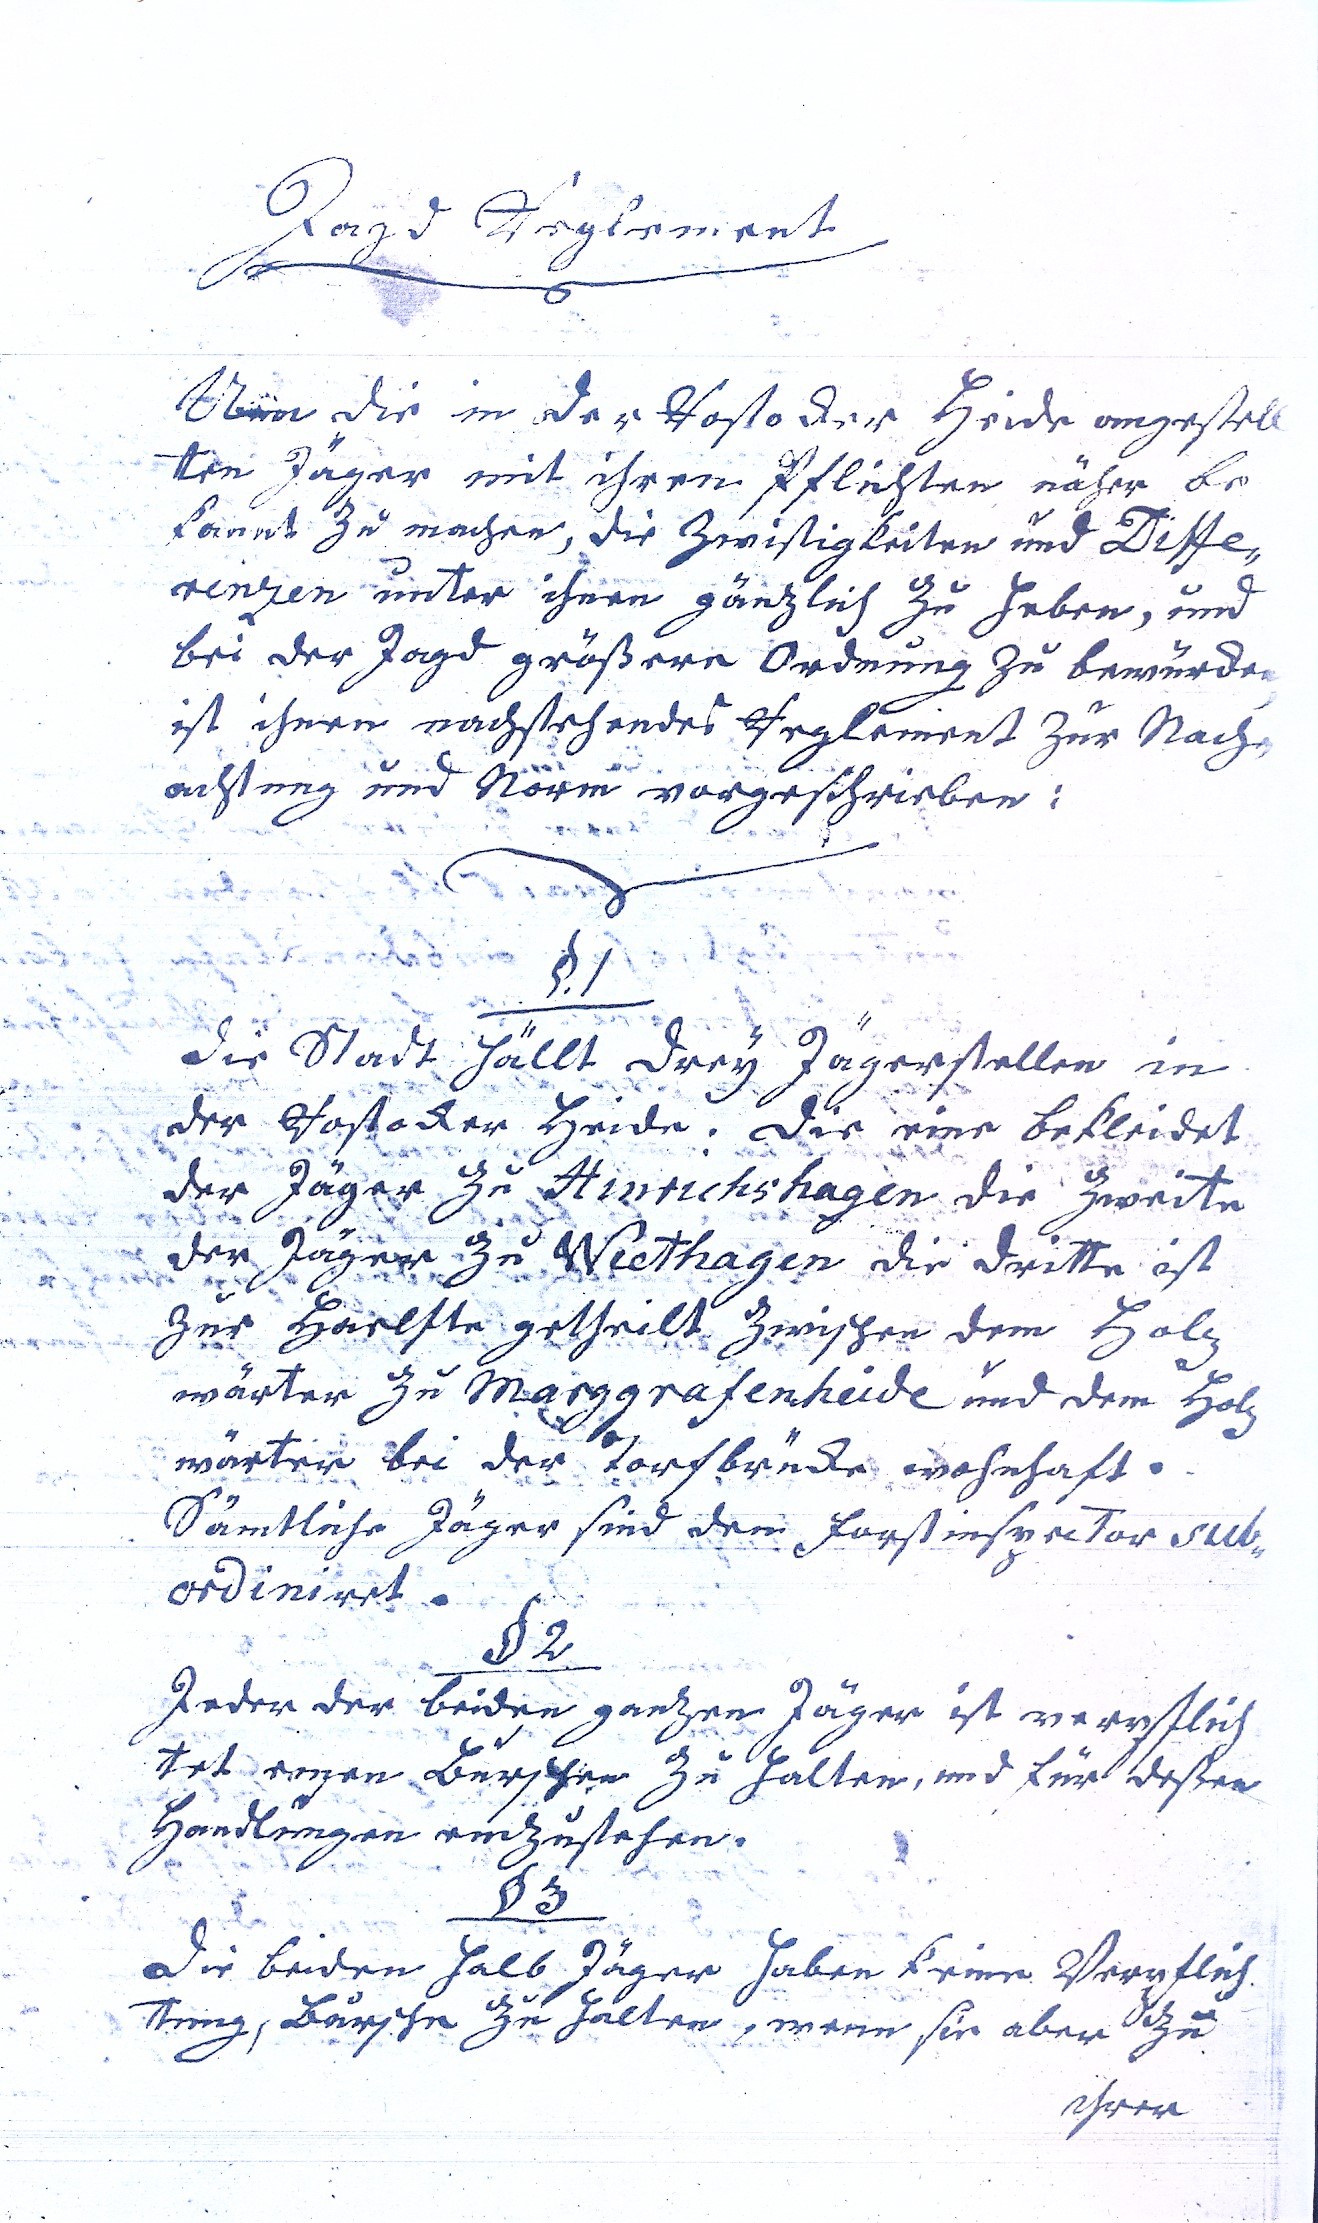 Jagd Reglement
Um die in der Rostocker Heide angestell
ten Jäger mit ihren Pflichten näher be
kannt zu machen, die Zwistigkeiten und Diffe„
renzen unter ihnen gänzlich zu heben, und
bei der Jagd größere Ordnung zu bewürcken
ist ihnen nachstehendes Reglement zur Nach„
achtung und Norm vorgeschrieben:
§. 1
Die Stadt hällt drey Jägerstellen in
der Rostocker Heide. Die eine bekleidet
der Jäger zu Hinrichshagen die zweite
der Jäger zu Wiethagen die dritte ist
zur Haelfte getheilt zwischen dem Holz
wärter zu Marggrafenheide und dem Holz
wärter bei der Torfbrücke wohnhaft.
Sämtliche Jäger sind dem Forstinspector sub„
ordiniret.
§ 2
Jeder der beiden gantzen Jäger ist verpflich
tet einen Burschen zu halten, und für deßen
Handlungen einzustehen.
§ 3
Die beiden halb Jäger haben keine Verpflich
tung, Bursche zu halten, wenn sie aber zu
ihrer